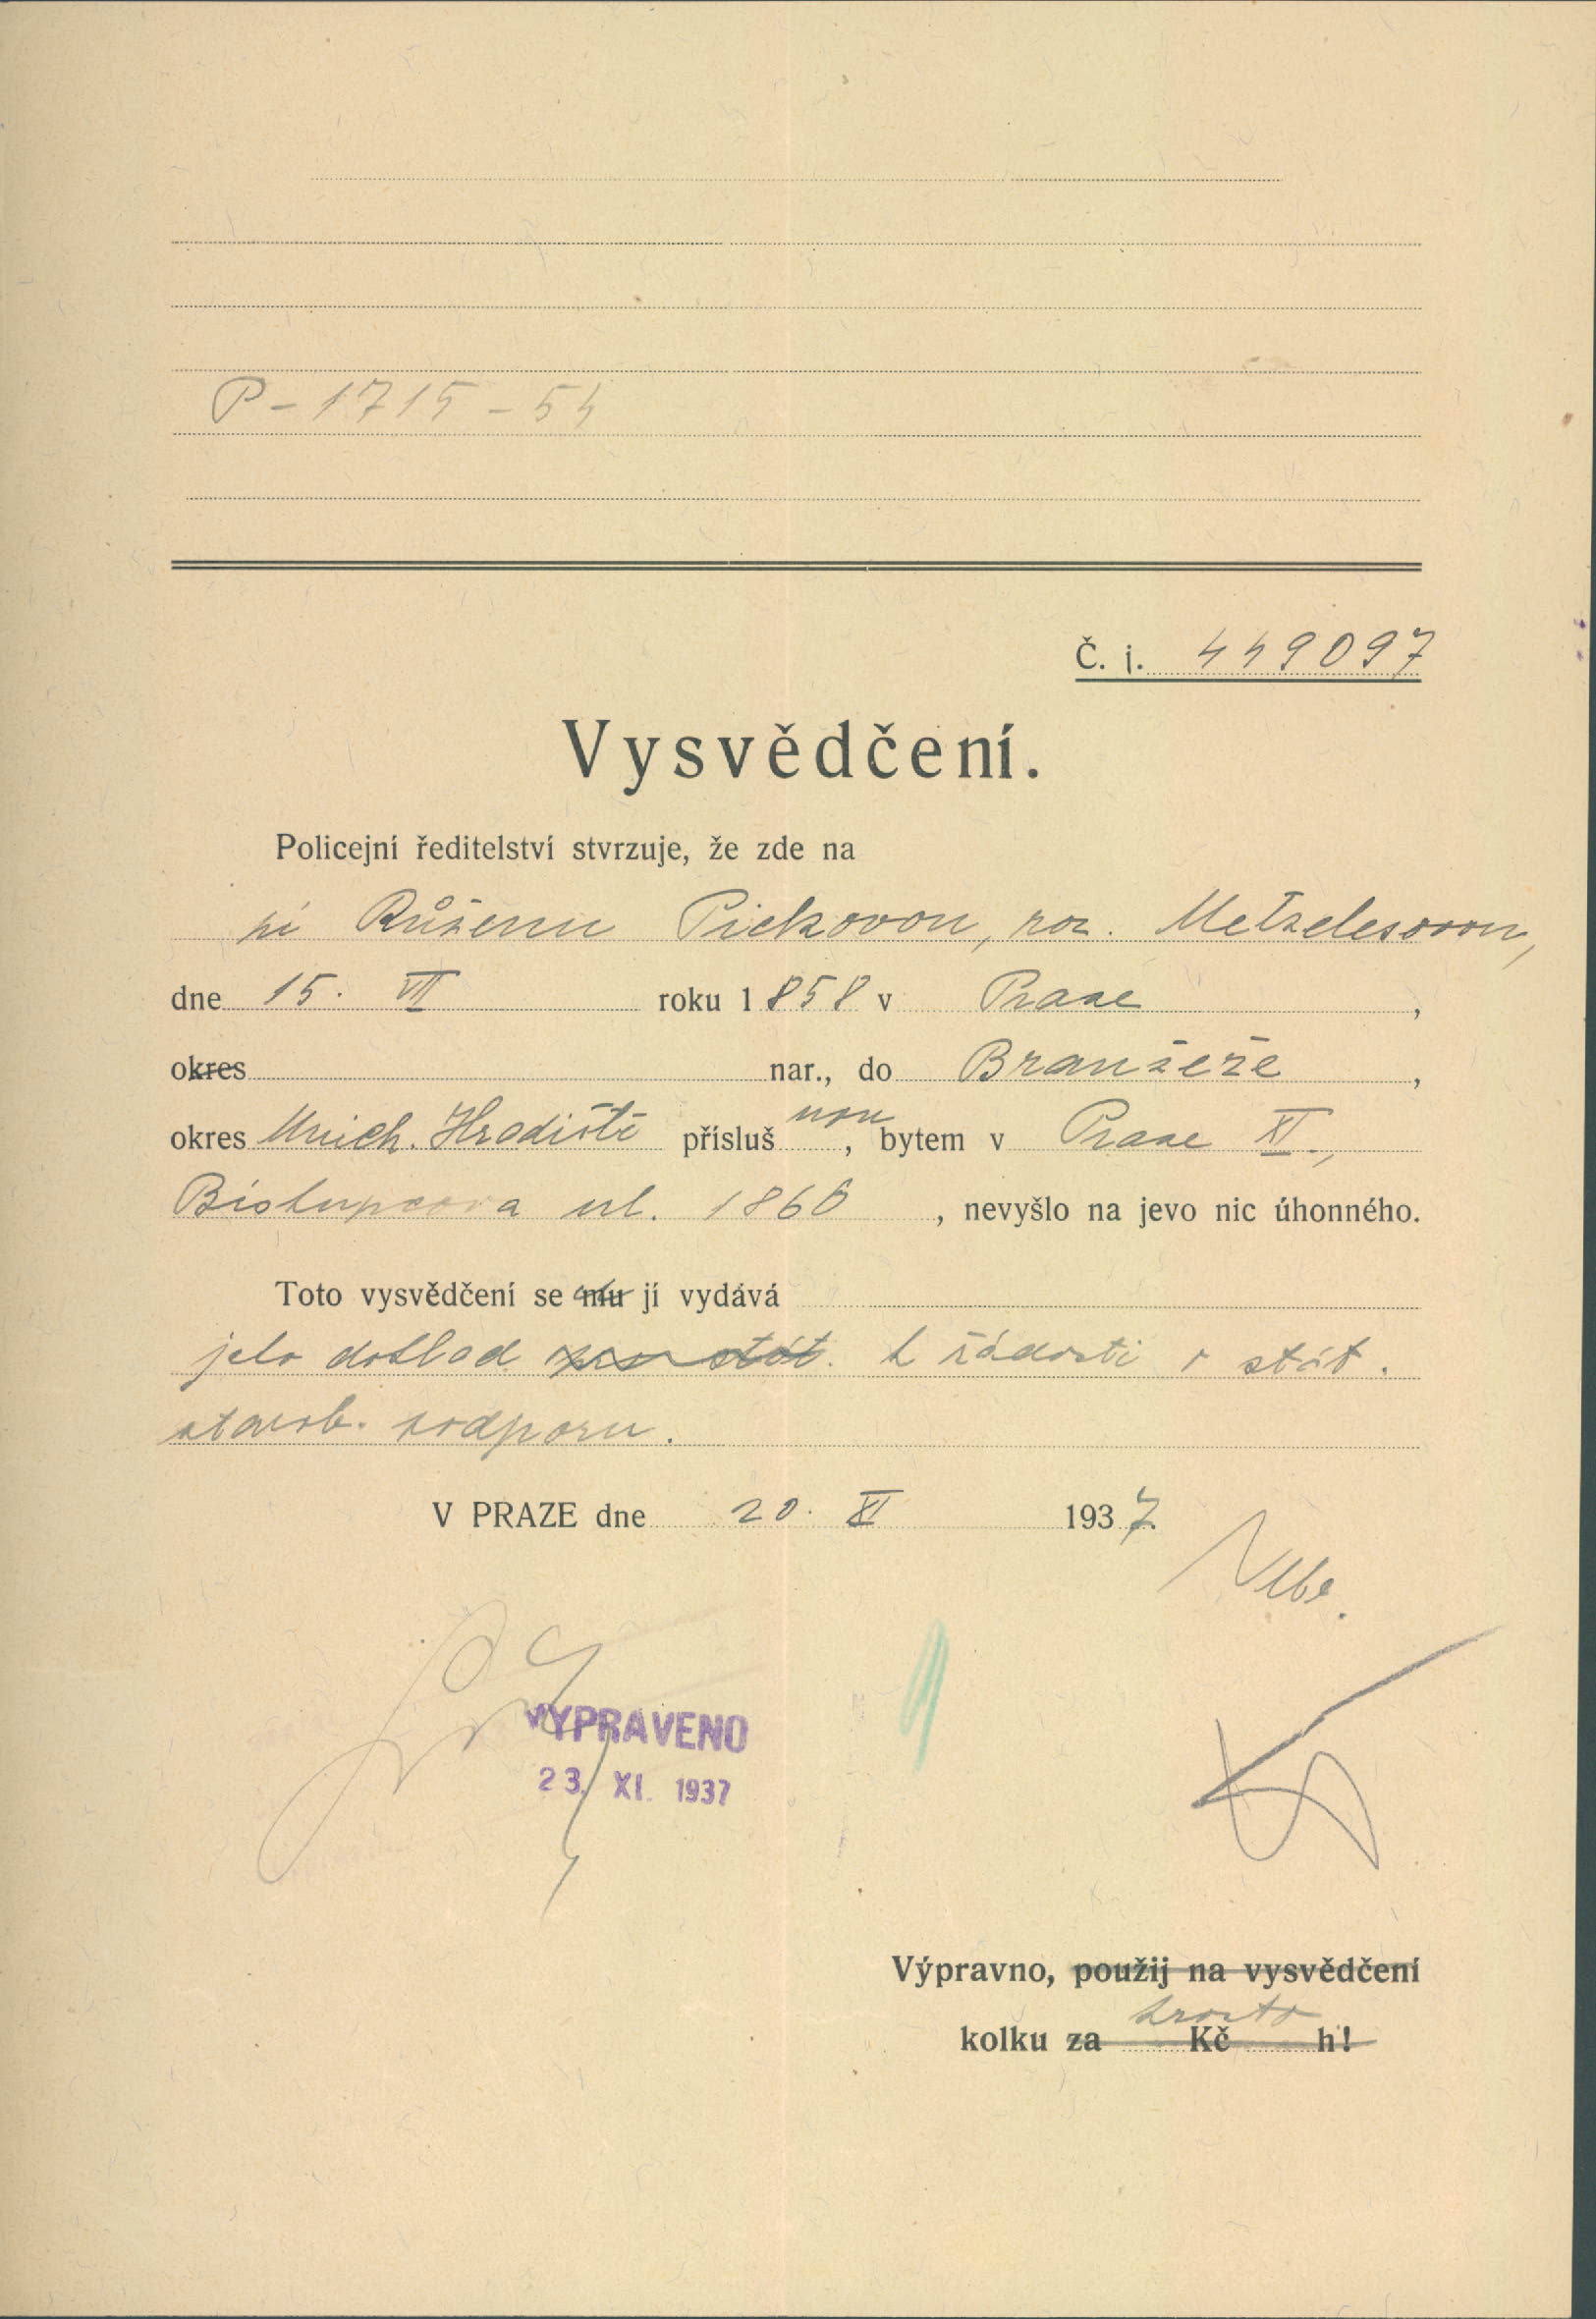 P-1715-54
Č. j. 449097
Vysvědčení.
Policejní ředitelství stvrzuje, že zde na
pí Růženu Pickovou, roz. Metzelesovou,
dne 15. VII roku 1858 v Praze,
okres nar., do Branžeže,
okres Mnich. Hradiště příslušnou, bytem v Praze XI.,
Biskupcova ul. 1860, nevyšlo na jevo nic úhonného.
Toto vysvědčení se mu jí vydává
jako doklad k žádosti o stát.
starob. podporu.
V PRAZE dne 20. XI 1937.
VYPRAVENO
23. XI. 1937
Výpravno, použij na vysvědčení
prosto
kolku za Kč h!